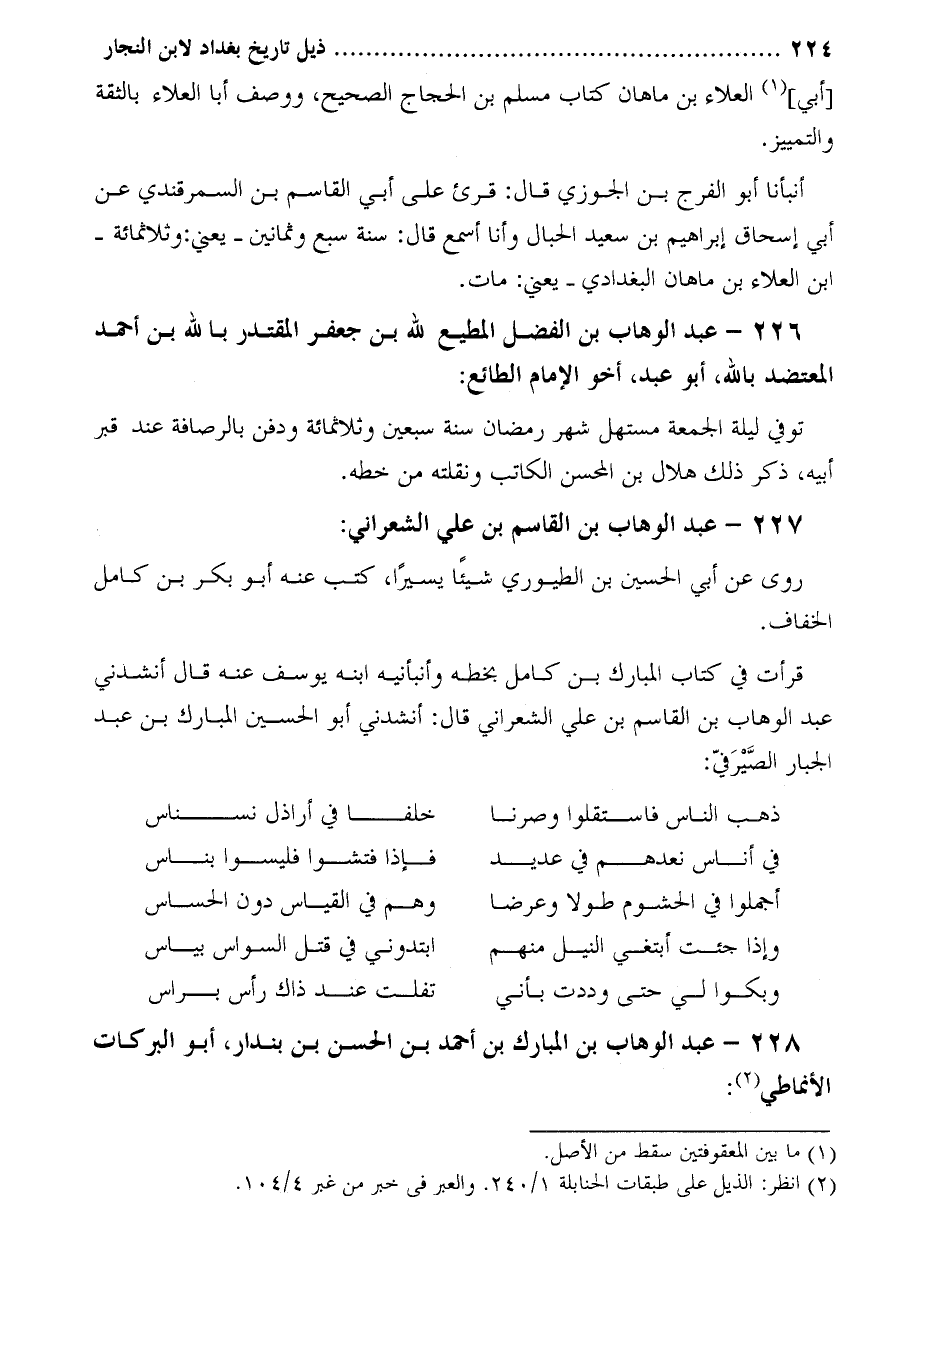 ٢٢٤ ........................................................ ذيل تاريخ بغداد لابن النجار
[أبي](١) العلاء بن ماهان كتاب مسلم بن الحجاج الصحيح، ووصف أبا العلاء بالثقة
والتمييز.
أنبأنا أبو الفرج بن الجوزي قال: قرئ على أبي القاسم بن السمرقندي عن
أبي إسحاق إبراهيم بن سعيد الحبال وأنا أسمع قال: سنة سبع وثمانين ـ يعني:وثلاثمائة ـ
ابن العلاء بن ماهان البغدادي ـ يعني: مات.
٢٢٦ – عبد الوهاب بن الفضل المطيع لله بن جعفر المقتدر بالله بن أحمد
المعتضد بالله، أبو عبد، أخو الإمام الطائع:
توفي ليلة الجمعة مستهل شهر رمضان سنة سبعين وثلاثمائة ودفن بالرصافة عند قبر
أبيه، ذكر ذلك هلال بن المحسن الكاتب ونقلته من خطه.
٢٢٧ – عبد الوهاب بن القاسم بن علي الشعراني:
روى عن أبي الحسين بن الطيوري شيئًا يسيرًا، كتب عنه أبو بكر بن كامل
الخفاف.
قرأت في كتاب المبارك بن كامل بخطه وأنبأنيه ابنه يوسف عنه قال أنشدني
عبد الوهاب بن القاسم بن علي الشعراني قال: أنشدني أبو الحسين المبارك بن عبد
الجبار الصَّيْرَفيّ:
ذهب الناس فاستقلوا وصرنا خلفا في أراذل نسناس
في أناس نعدهم في عديد فإذا فتشوا فليسوا بناس
أجملوا في الحشوم طولا وعرضا وهم في القياس دون الحساس
وإذا جئت أبتغي النيل منهم ابتدوني في قتل السواس بياس
وبكوا لي حتى وددت بأني تفلت عند ذاك رأس براس
٢٢٨ – عبد الوهاب بن المبارك بن أحمد بن الحسن بن بندار، أبو البركات
الأنماطي(٢):
(١) ما بين المعقوفتين سقط من الأصل.
(٢) انظر: الذيل على طبقات الحنابلة ٢٤٠/١. والعبر فى خبر من غبر ١٠٤/٤.